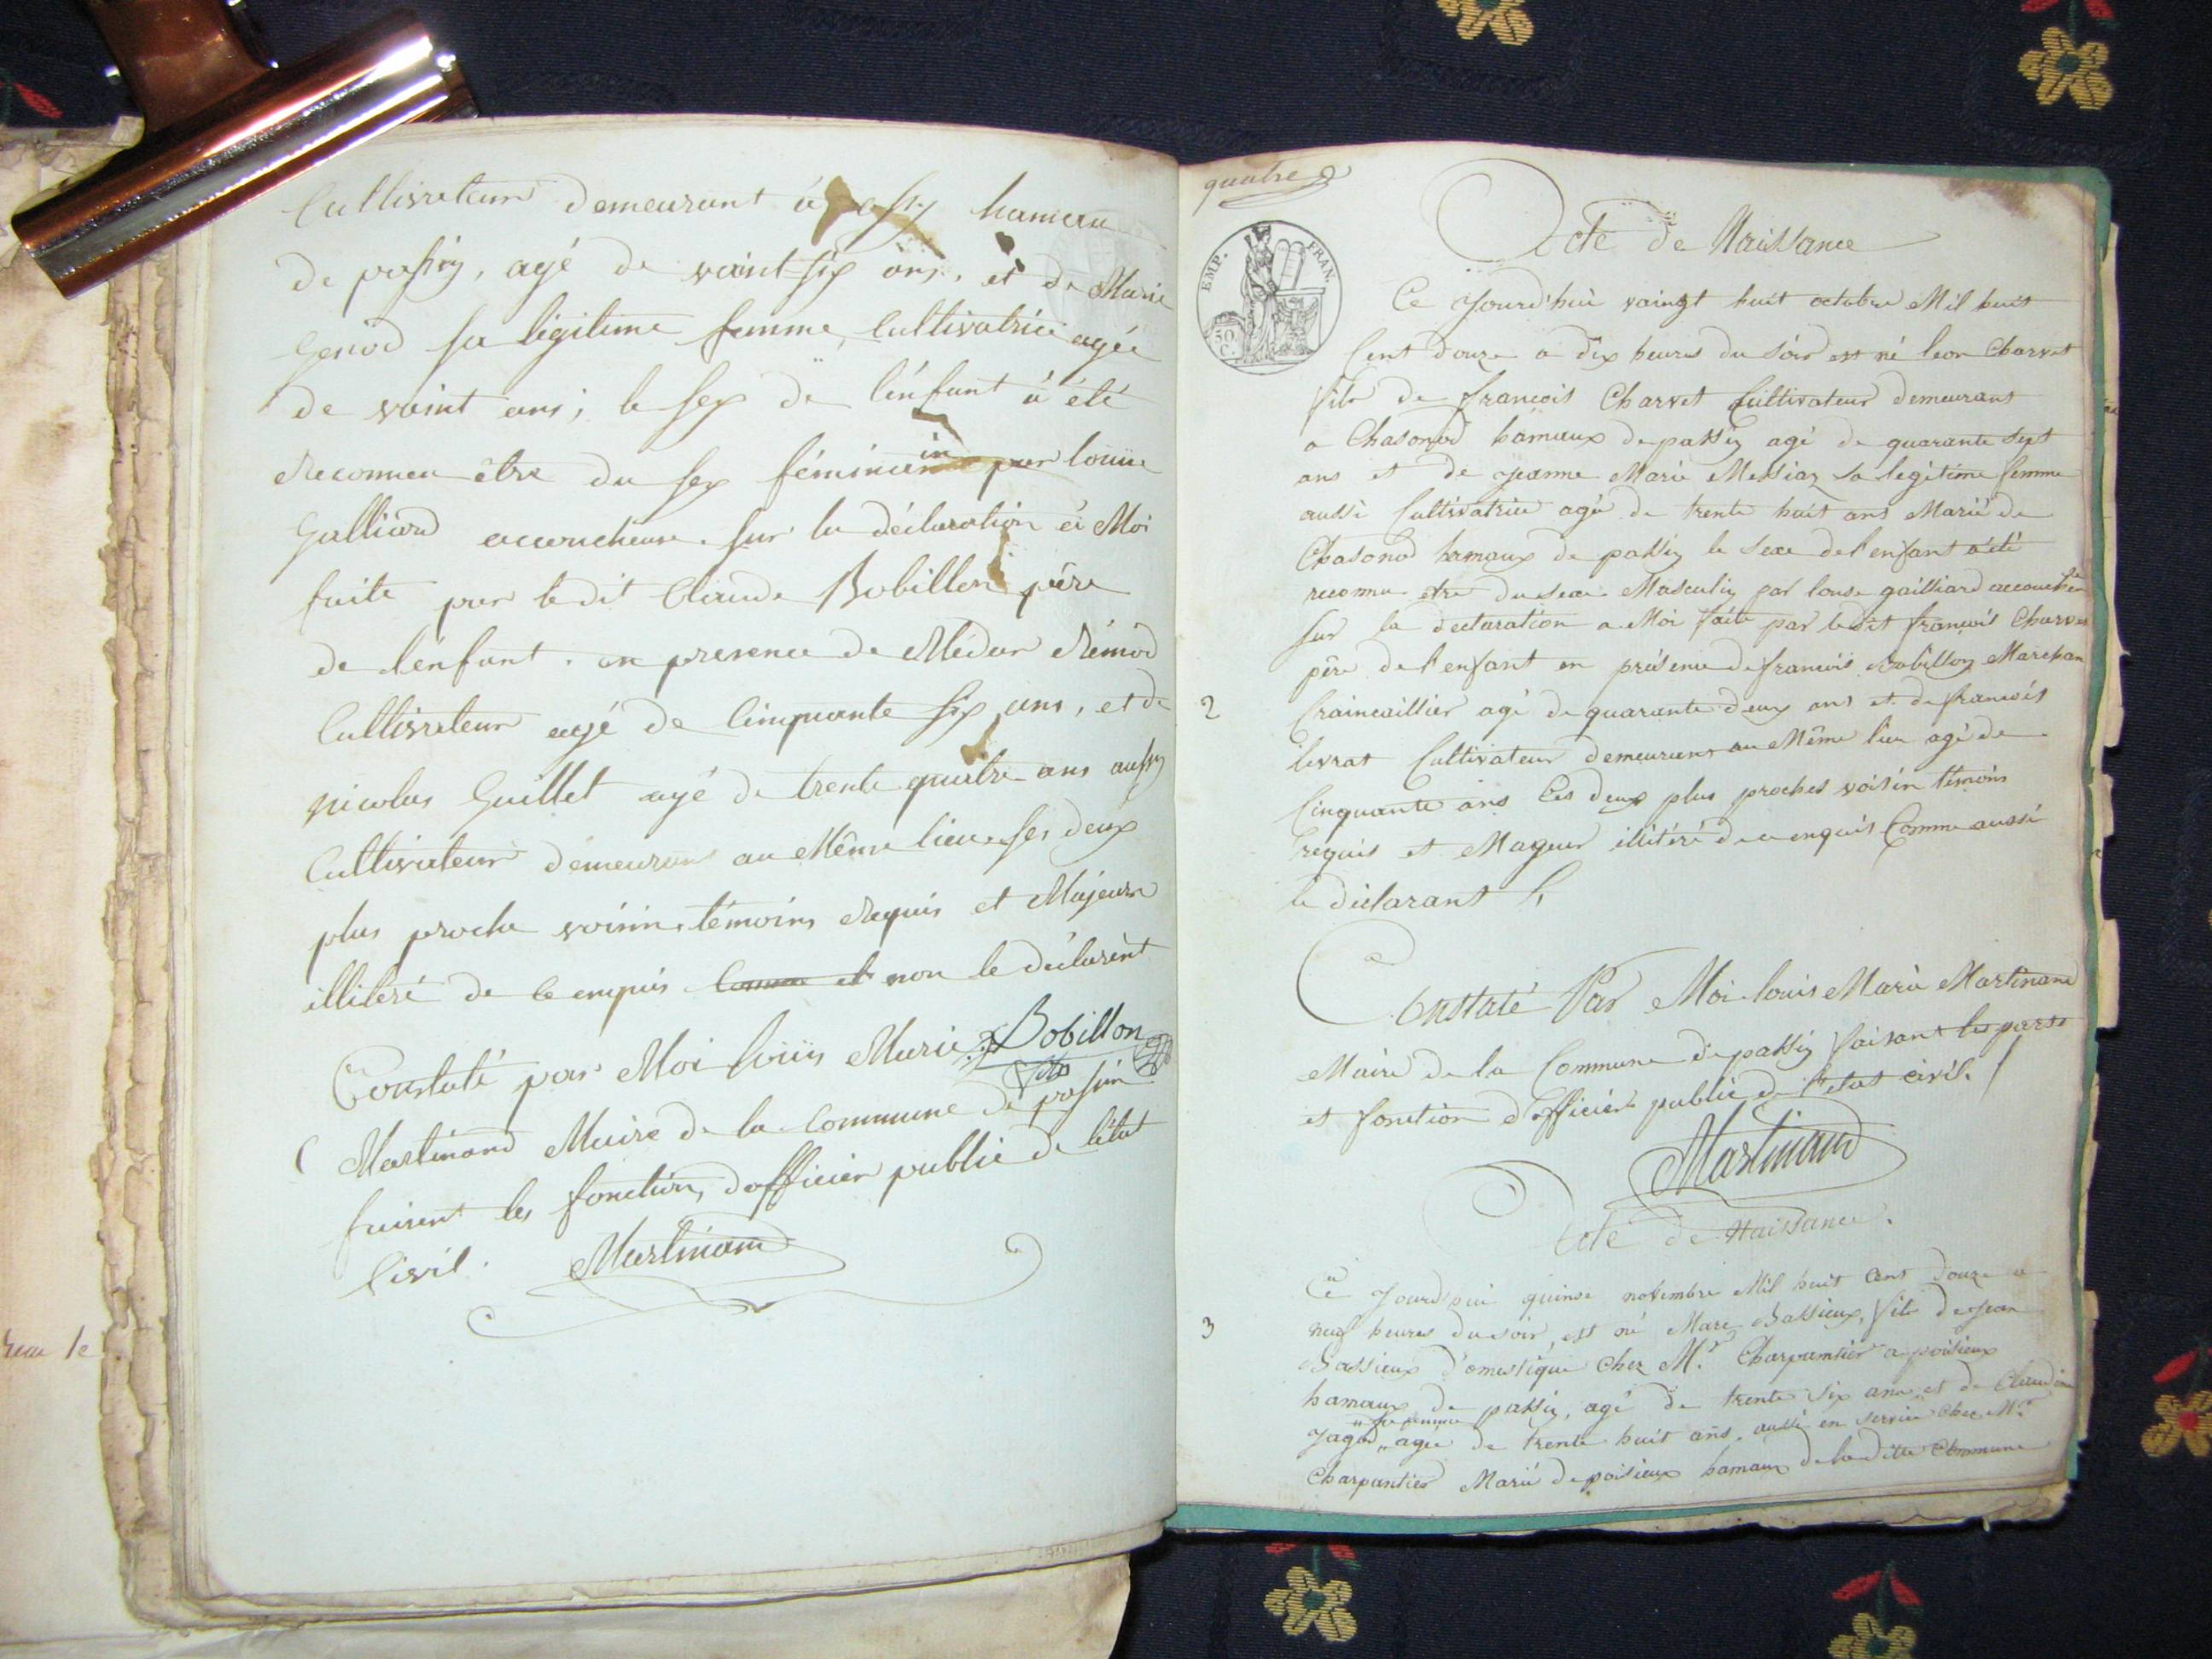 Cultivateur demeurant à hameau
de passin, agé de vaint six ans, et de Marie
Genod sa légitime femme, Cultivatrice agée
de vaint ans; le sex de l'énfant à été
Reconneu être du sex féminien in par louise
Galliard accoucheuse. sur la déclaration à Moi
faite par le dit Claude Bobillon père
de lénfant. en presence de Médar Rémod
Cultivateur agé de Cinquante six ans, et de
nicolas Guillet agé de trente quatre ans aussy
Cultivateur demeurans au Même lieu. ses deux
plus proche voisin témoins Requis et Majeurs
illiteré de ce enquis non le déclarént
Bobillon
Constaté par Moi louis Marie
Martinand Maire de la commune de passin
faisent les fonction, dofficier public de létat
Civil. Martinand
quatre
EMP. FRAN.
50 C.
Acte de Naissance
Ce Jourd'hui vaingt huit octobre Mil huit
Cent douze a dix heures du soir est né leon Charvet
fils de francois Charvet Cultivateur demeurant
a Chasonod hamaux de passin agé de quarante sept
ans et de jeanne Marie Messiaz sa legitime femme
aussi Cultivatrice agée de trente huit ans Marié de
Chasonod hamaux de passin le sexe de l'enfant a été
reconnu etre du sexe Masculin par louse gailliard
sur la declaration a Moi faite par le dit françois Charvet
père de l'enfant en présence de francois Bobillon Marchan
2
Craincaillier agé de quarante deux ans et de francois
livrat Cultivateur demeurens au Même lieu agé de
Cinquante ans Les deux plus proches voisin témoins
requis et Mageur illitéré de ce enquis Comme aussi
le déclarant
Constaté Par Moi louis Marie Martinand
Maire de la Commune de passin faisant les
et fonction d'officier public de l'etat civil.
Martinand
Acte de Naissance.
Ce Jourd'hui quinse novembre Mil huit Cent douze a
3
neuf heures du soir, est né Marc Bassieux, fils de Jean
Bassieux domestique chez Mr. Charpantier a poisieux
hamaux de passin, agé de trente six ans et de
sa femme
Jagod agée de trente huit ans. aussi en service chez Mr
Charpantier Marié de poisieux hamaux de la ditte Commune